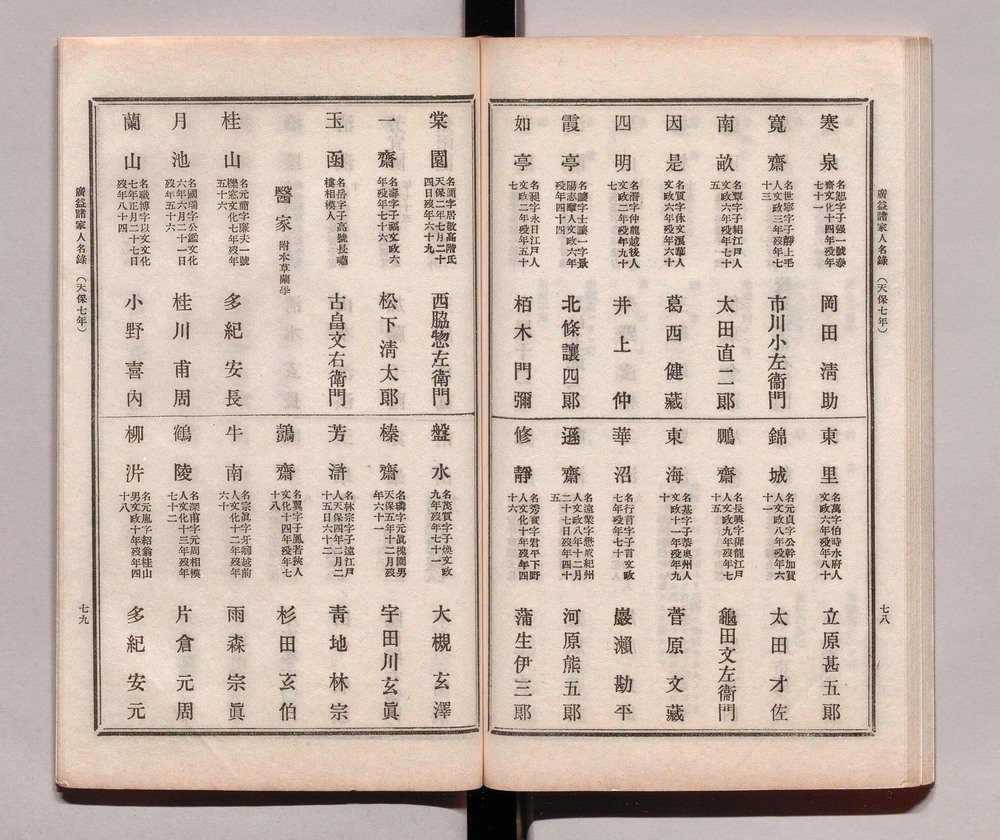 廣益諸家人名錄 (天保七年)
七八
寒泉 名恕字子强一號泰齋文化十四年歿年七十一 岡田淸助
寬齋 名世寧字子靜上毛人文政三年歿年七十三 市川小左衞門
南畝 名覃字子耜江戸人文政六年歿年七十五 太田直二郞
因是 名質字休文浪華人文政六年歿年六十 葛西健藏
四明 名潛字仲龍越後人文政二年歿年九十七 井上仲
霞亭 名讓字士讓一字景陽志摩人文政六年歿年四十四 北條讓四郞
如亭 名昶字永日江戸人文政二年歿年五十七 柏木門彌
東里 名萬字伯時水府人文政六年歿年八十 立原甚五郞
錦城 名元貞字公幹加賀人文政八年歿年六十一 太田才佐
鵬齋 名長興字穉龍江戸人文政九年歿年七十五 龜田文左衞門
東海 名基字子恭奥州人文政十一年歿年九十 菅原文藏
華沼 名行言字子言文政七年歿年七十 巖瀨勘平
遜齋 名遠業字懋成紀州人文政八年十二月二十七日歿年四十五 河原熊五郞
修靜 名秀實字君平下野人文化十年歿年四十六 蒲生伊三郞
棠園 名簡字居敬高階氏天保二年七月二十四日歿年六十九 西脇惣左衞門
一齋 名壽字子福文政六年歿年七十六 松下淸太郞
玉凾 名岳字子高號長嘯樓相模人 古畠文右衞門
醫家 附本草蘭學
桂山 名元簡字廉夫一號櫟窓文化七年歿年五十六 多紀安長
月池 名國瑞字公鑑文化六年六月二十一日歿年五十六 桂川甫周
蘭山 名職博字以文文化七年正月二十七日歿年八十四 小野喜內
盤水 名茂質字子煥文政九年歿年七十一 大槻玄澤
榛齋 名璘字元眞槐園男天保五年十二月歿年六十一 宇田川玄眞
芳滸 名林宗字子遠江戸人天保四年二月二十五日六十二 靑地林宗
鷧齋 名翼字子鳳若挾人文化十四年歿年七十八 杉田玄伯
牛南 名宗眞字牙卿越前人文化十二年歿年六十 雨森宗眞
鶴陵 名深甫字元周相模人文化十三年歿年七十二 片倉元周
柳沜 名元胤字紹翁桂山男文政十年歿年四十八 多紀安元
廣益諸家人名錄 (天保七年)
七九